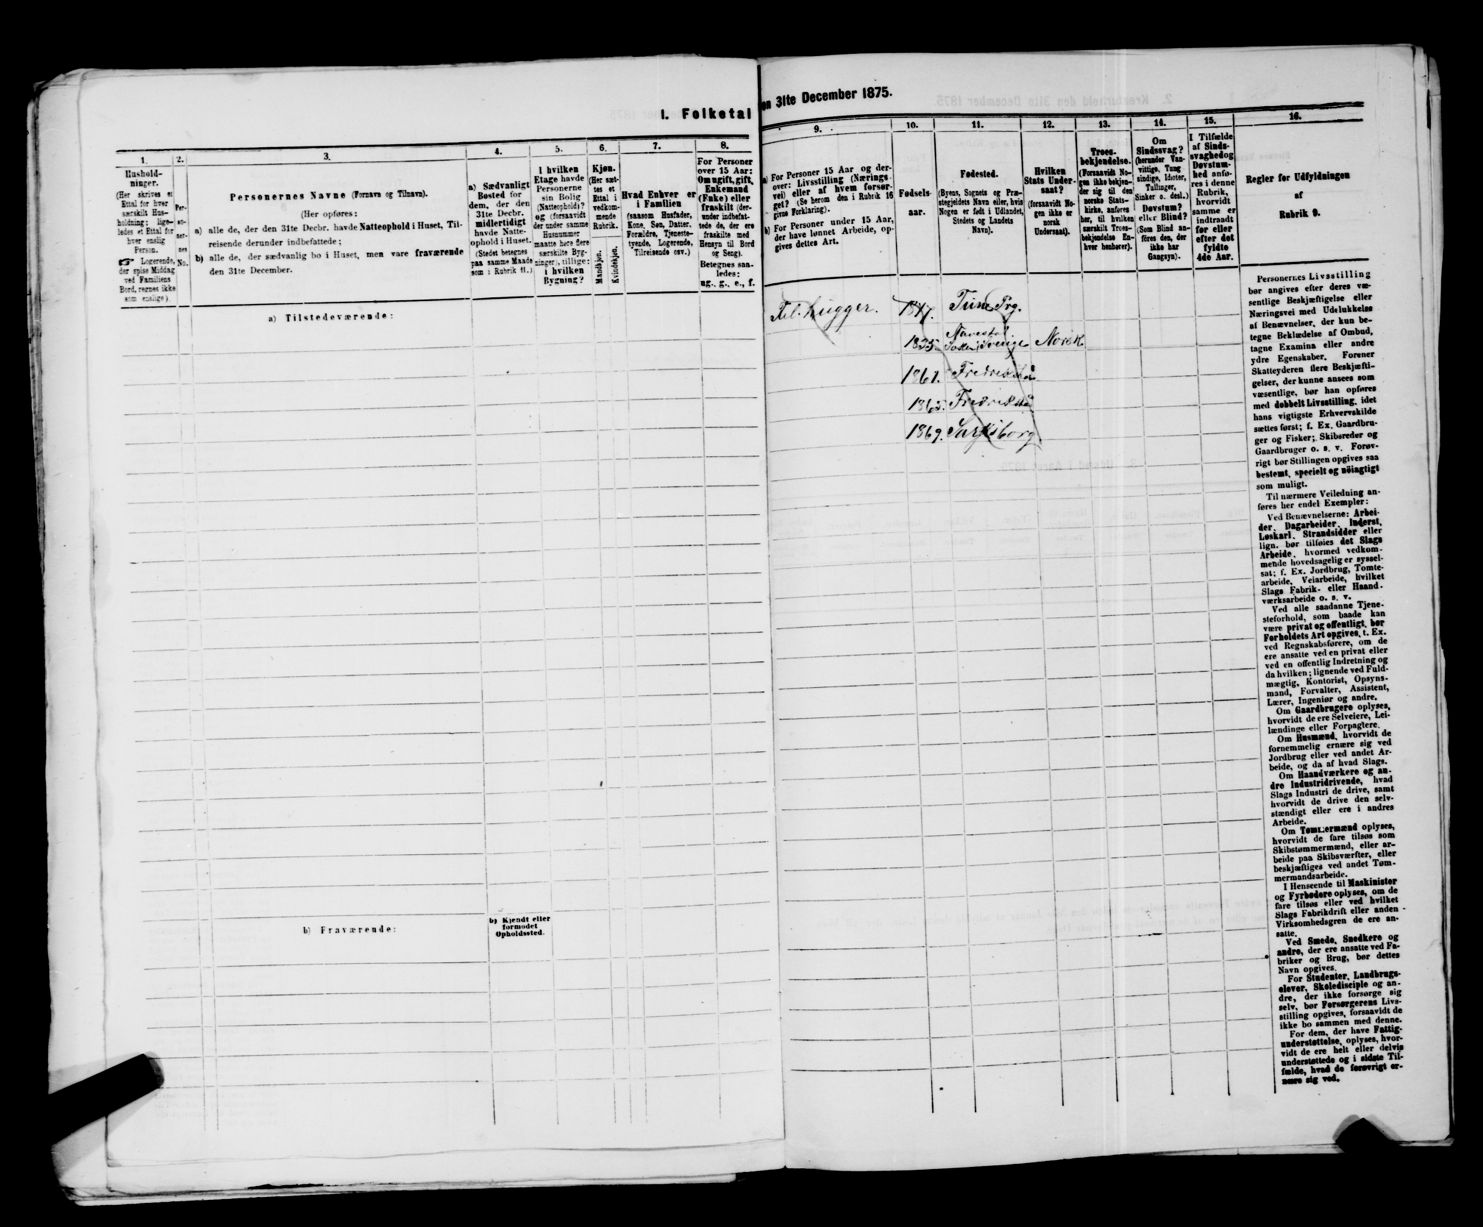 1. Folketal
en 31te December 1875.
1.
Hushold-
ninger.
(Her skrives et
Ettal for hver
særskilt Hus-
holdning; lige-
ledes et Ettal for
hver enslig
Person.
☞ Logerende,
der spise Middag
ved Familiens
Bord, regnes ikke
som enslige).
2.
Per-
so-
ner-
nes
No.
3.
Personernes Navne (Fornavn og Tilnavn).
(Her opføres:
a) alle de, der den 31te Decbr. havde Natteophold i Huset, Til-
reisende derunder indbefattede;
b) alle de, der sædvanlig bo i Huset, men vare fraværende
den 31te December.
4.
a) Sædvanligt
Bosted for
dem, der den
31te Decbr.
midlertidigt
havde Natte-
ophold i Huset.
(Stedet betegnes
paa samme Maade
som i Rubrik 11.)
5.
I hvilken
Etage havde
Personerne
sin Bolig
(Natteophold)?
og (forsaavidt
der under samme
Husnummer
maatte høre flere
særskilte Byg-
ninger), tillige:
i hvilken
Bygning?
6.
Kjøn.
(Her sæt-
tes et
Ettal i
vedkom-
mende
Rubrik.
Mandkjøn.
Kvindekjøn.
7.
Hvad Enhver er
i Familien
(saasom Husfader,
Kone, Søn, Datter,
Forældre, Tjeneste-
tyende, Logerende,
Tilreisende osv.)
8.
For Personer
over 15 Aar:
Om ugift, gift,
Enkemand
(Enke) eller
fraskilt (der-
under indbefat-
tede de, der ere
fraskilte med
Hensyn til Bord
og Seng).
Betegnes saa-
ledes:
ug., g., e., f.
9.
a) For Personer 15 Aar og der-
over: Livsstilling (Nærings-
vei) eller af hvem forsør-
get? (Se herom den i Rubrik 16
givne Forklaring).
b) For Personer under 15 Aar,
der have lønnet Arbeide, op-
gives dettes Art.
10.
Fødsels-
aar.
11.
Fødested.
(Byens, Sognets og Præ-
stegjeldets Navn eller, hvis
Nogen er født i Udlandet,
Stedets og Landets
Navn).
12.
Hvilken
Stats Under-
saat?
(forsaavidt No-
gen ikke er
norsk
Undersaat).
13.
Troes-
bekjendelse.
(Forsaavidt No-
gen ikke bekjen-
der sig til den
norske Stats-
kirke, anføres
her, til hvilken
særskilt Troes-
bekjendelse En-
hver henhører).
14.
Om
Sindssvag?
(herunder Van-
vittige, Tung
sindige, Idioter,
Tullinger,
Sinker o. desl.)
Døvstum?
eller Blind?
(Som Blind an-
føres den, der
ikke har
Gangsyn).
15.
I Tilfælde
af Sinds-
svaghed og
Døvstum-
hed anfø-
res i denne
Rubrik,
hvorvidt
samme er
indtraadt
før eller
efter det
fyldte
4de Aar.
16.
Regler for Udfyldningen
af
Rubrik 9.
a) Tilstedeværende:
Fel. Lugger. 1817. Tune Prg.
1835. Sverige Norsk
1861. Fredrikstad
1865. Fredrikstad
1869. Sarpsborg
b) Fraværende:
b) Kjendt eller
formodet
Opholdssted.
Personernes Livsstilling
bør angives efter deres væ-
sentlige Beskjæftigelse eller
Næringsvei med Udelukkelse
af Benævnelser, der kun be-
tegne Beklædelse af Ombud,
tagne Examina eller andre
ydre Egenskaber. Forener
Skatteyderen flere Beskjæfti-
gelser, der kunne ansees som
væsentlige, bør han opføres
med dobbelt Livsstilling, idet
hans vigtigste Erhvervskilde
sættes først; f. Ex. Gaardbru-
ger og Fisker; Skibsreder og
Gaardbruger o. s. v. Forøv-
rigt bør Stillingen opgives saa
bestemt, specielt og nøiagtigt
som muligt.
Til nærmere Veiledning an-
føres her endel Exempler:
Ved Benævnelserne: Arbei-
der, Dagarbeider, Inderst,
Løskarl, Strandsidder eller
lign. bør tilføies det Slags
Arbeide, hvormed vedkom-
mende hovedsagelig er syssel-
sat; f. Ex. Jordbrug, Tomte-
arbeide, Veiarbeide, hvilket
Slags Fabrik- eller Haand-
værksarbeide o. s. v.
Ved alle saadanne Tjene-
steforhold, som baade kan
være privat og offentligt, bør
Forholdets Art opgives, t. Ex.
ved Regnskabsførere, om de
ere ansatte ved en privat eller
ved en offentlig Indretning og
da hvilken; lignende ved Fuld-
mægtig, Kontorist, Opsyns-
mand, Forvalter, Assistent,
Lærer, Ingeniør og andre.
Om Gaardbrugere oplyses,
hvorvidt de ere Selveiere, Lei-
lændinge eller Forpagtere.
Om Husmænd, hvorvidt de
fornemmelig ernære sig ved
Jordbrug eller ved andet Ar-
beide, og da af hvad Slags.
Om Haandværkere og an-
dre Industridrivende, hvad
Slags Industri de drive, samt
hvorvidt de drive den selv-
stændigt eller ere i andres
Arbeide.
Om Tømmermænd oplyses,
hvorvidt de fare tilsøs som
Skibstømmermænd, eller ar-
beide paa Skibsværfter, eller
beskjæftiges ved andet Tøm-
mermandsarbeide.
I Henseende til Maskinister
og Fyrbødere oplyses, om de
fare tilsøs eller ved hvilket
Slags Fabrikdrift eller anden
Virksomhedsgren de ere an-
satte.
Ved Smede, Snedkere og
andre, der ere ansatte ved Fa-
briker og Brug, bør dettes
Navn opgives.
For Studenter, Landbrugs-
elever, Skoledisciple og an-
dre, der ikke forsørge sig
selv, bør Forsørgerens Livs-
stilling opgives, forsaavidt de
ikke bo sammen med denne.
For dem, der have Fattig-
understøttelse, oplyses, hvor-
vidt de ere helt eller delvis
understøttede og i sidste Til-
fælde, hvad de forøvrigt er-
nære sig ved.